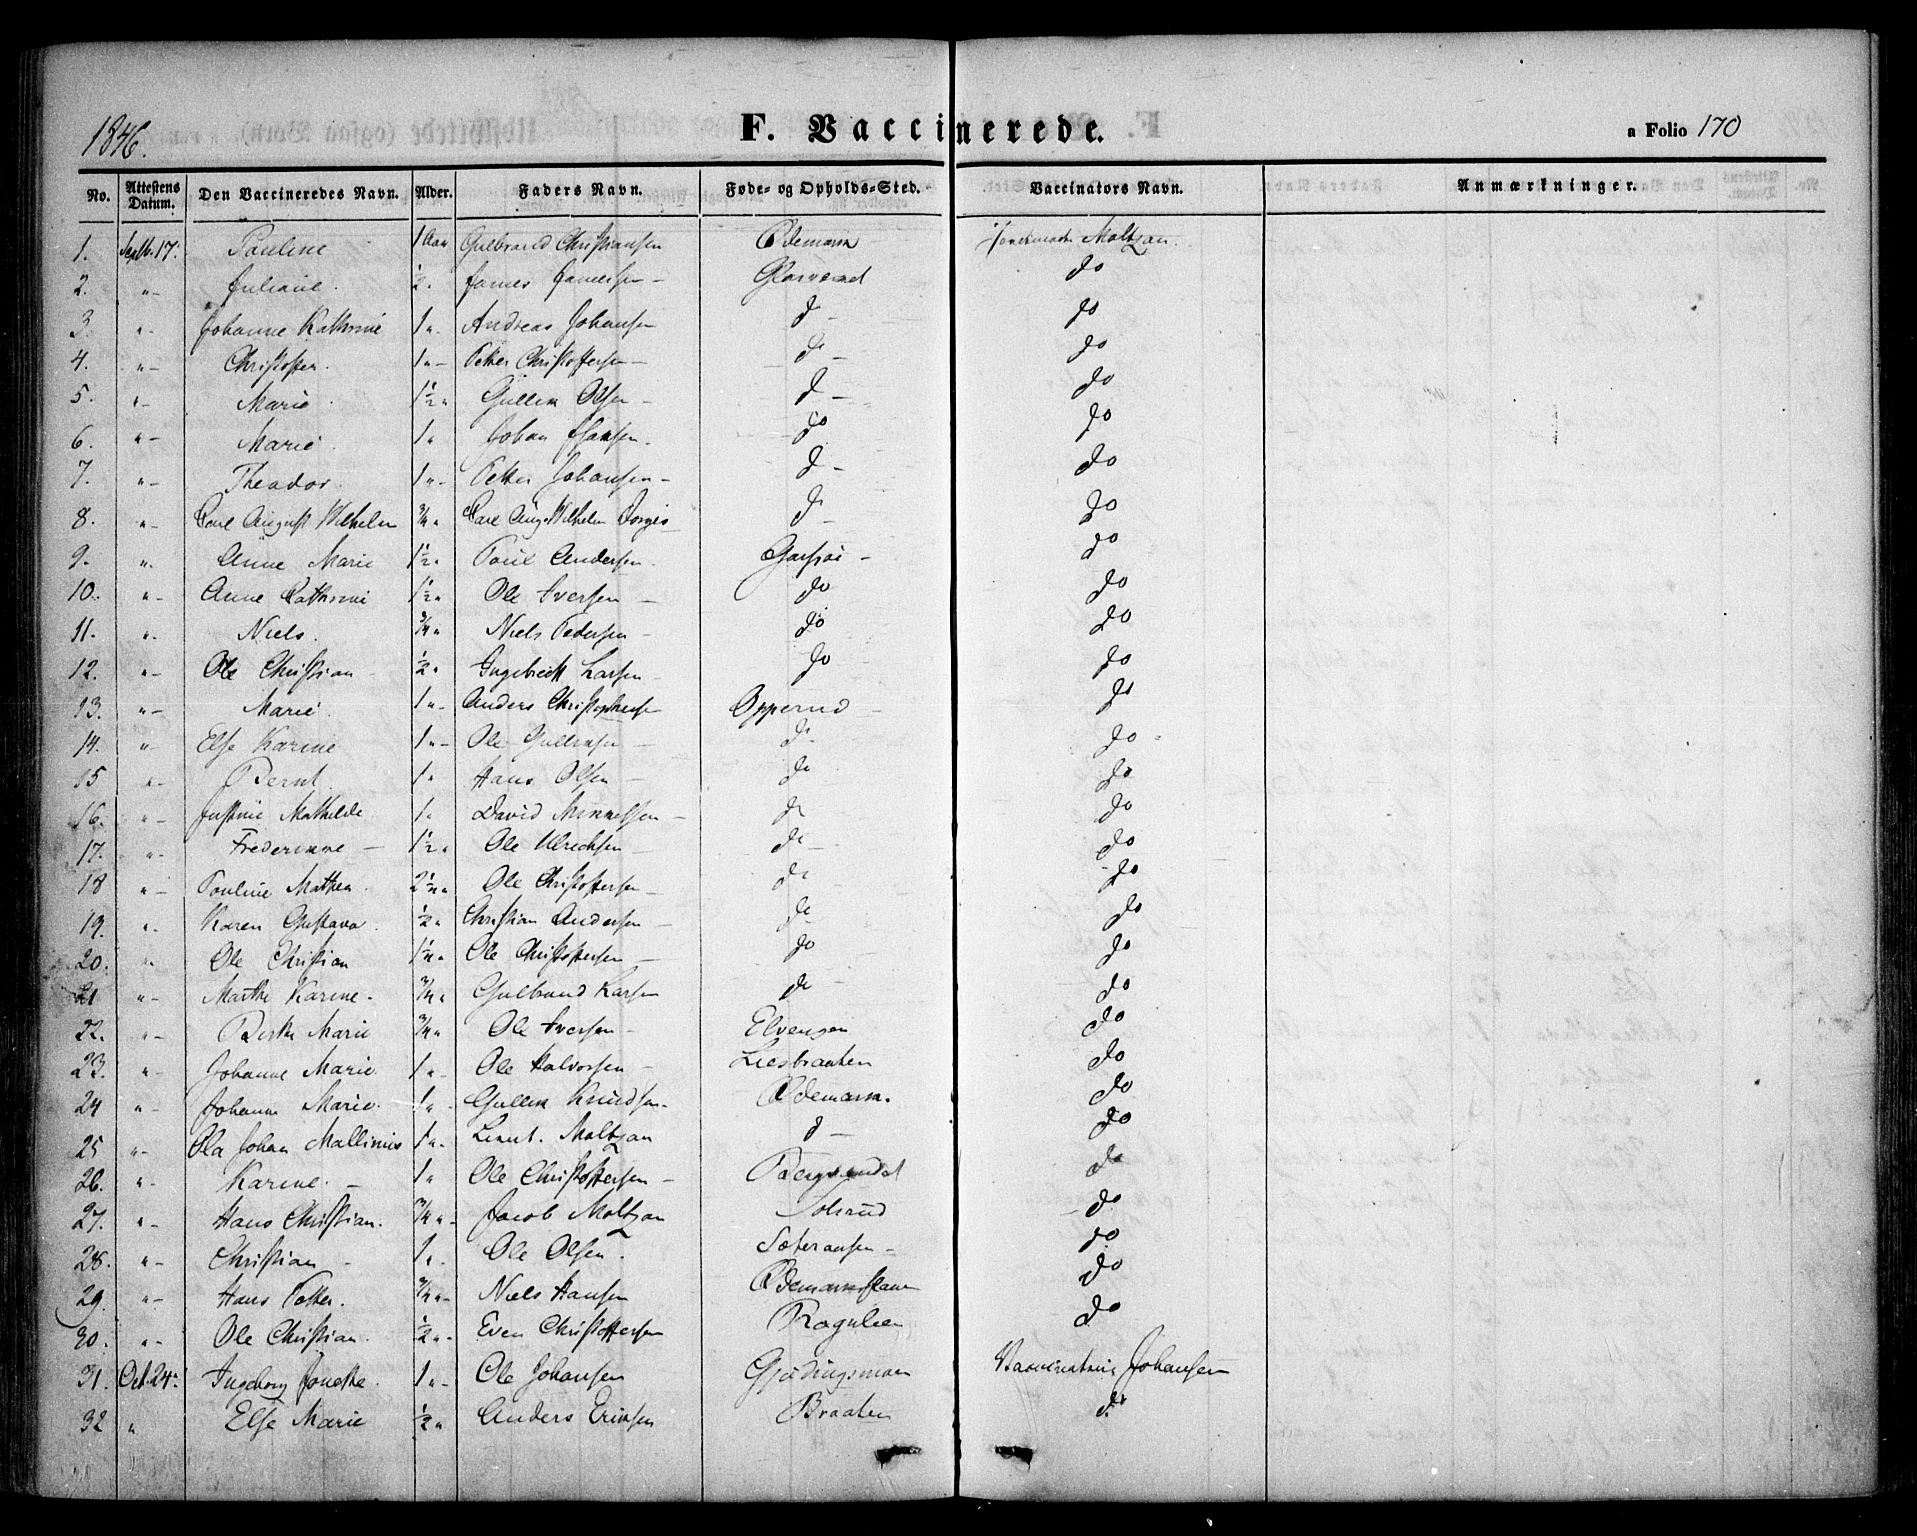 1846.
F. Vaccinerede.
a Folio 170
No. Attestens Datum. Den Vaccineredes Navn. Alder. Faders Navn. Føde- og Opholds-Sted. Vaccinators Navn. Anmærkninger.
1. Septb. 17. Pauline 1 Aar Gulbrand Christiansen Odemark Moltzau.
2. "- Juliane. ½ " James Jamessen - Glasværd do
3. "- Johanne Kathrine 1 " Andreas Johansen d - do
4. "- Christoffer. 1 "- Petter Christoffersen - d - do
5. "- Marie 1½ " Gullik Olsen - d - do
6. "- Marie 1 " Johan Hansen. do do
7. "- Theodor. 1 "- Petter Johansen - d - do
8. "- Carl August Wilhelm ¾ " Carl Aug. Wilhelm d - do
9. ". Anne Marie 1½ " Poul Andersen. do
10. "- Anne Cathrine 1½ " Ole Iversen - do do
11. ". Niels. ¾ " Niels Pedersen - do do
12. "- Ole Christian ½ " Ingebrett Larsen - do do
13. "- Marie 1 "- Anders Christophersen Opperud - do
14. "- Else Karine 1 "- Ole do do
15 "- Bernt. 1 " Hans Olsen - do do
16. "- Justine Mathilde 1 " David - do do
17. "- - 1½ " Ole Ulrichsen - do - do
18 "- Pauline Mathea. 2½ " Ole Christoffersen - do do
19. ". Karen Gustava. ½ " Christian Andersen - do do
20. "- Ole Christian 1½ " Ole Christoffersen - do do
21 "- Marthe Karine. ¾ " Gulbrand Larsen do do
22. "- Berthe Marie ¾ " Ole Iversen - Elvengen do
23. "- Johanne Marie. 1 " Ole Halvorsen - Liesbraaten do
24 "- Johanne Marie. 1 " Gullik Knudsen. Odemark. do
25 "- Ola Johan Mallinius 1 ". Lieut. Moltzau d - do
26. "- Karine. - 1 " Ole Christoffersen - do
27. "- Hans Christian. ¾ "- Jacob Moltzau Solsrud do
28. "- Christian - 1 " Ole Olsen. do
29. "- Hans Petter. ¾ "- Niels Hansen do
30. "- Ole Christian. ½ "- Even Christoffersen do
31. Oct. 24. Ingeborg 1 "- Ole Johansen Johansen
32 " Else Marie ½ " Anders Eriksen Braaten do